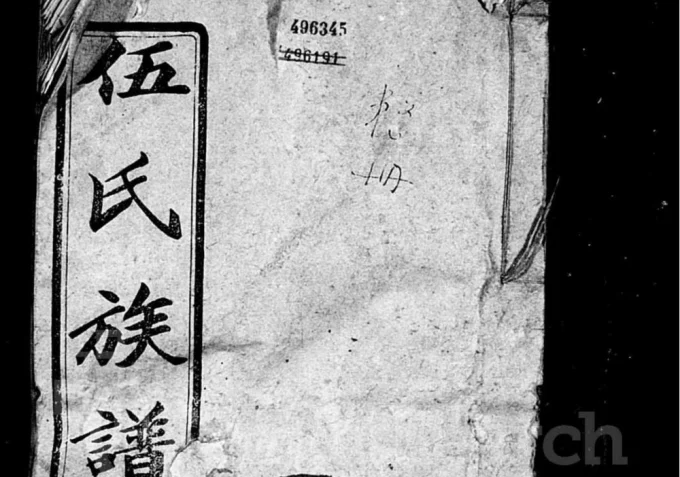 伍氏族譜
496345
496191
冊